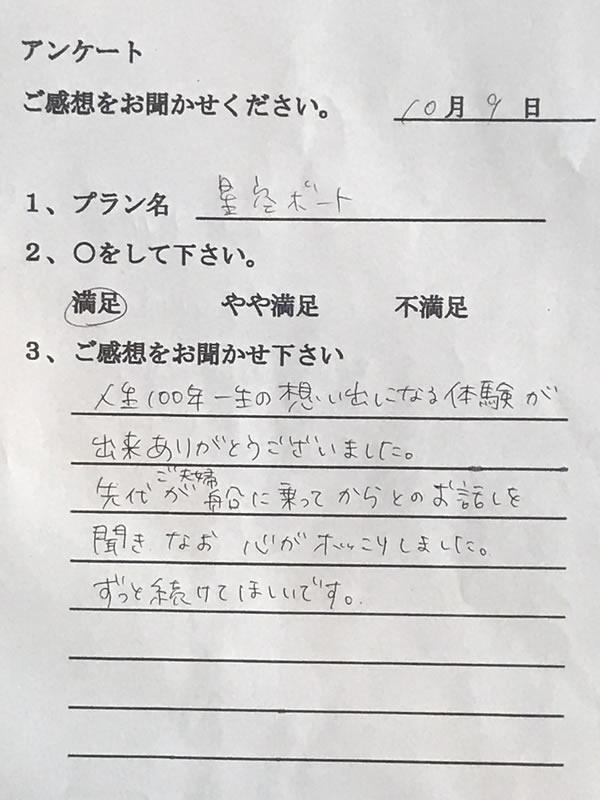 アンケート
ご感想をお聞かせください。
10月9日
1、プラン名 星空ボート
2、〇をして下さい。
満足 やや満足 不満足
3、ご感想をお聞かせ下さい
人生100年一生の想い出になる体験が
出来ありがとうございました。
ご夫婦
先代が船に乗ってからとのお話しを
聞き なお 心がホッこりしました。
ずっと続けてほしいです。